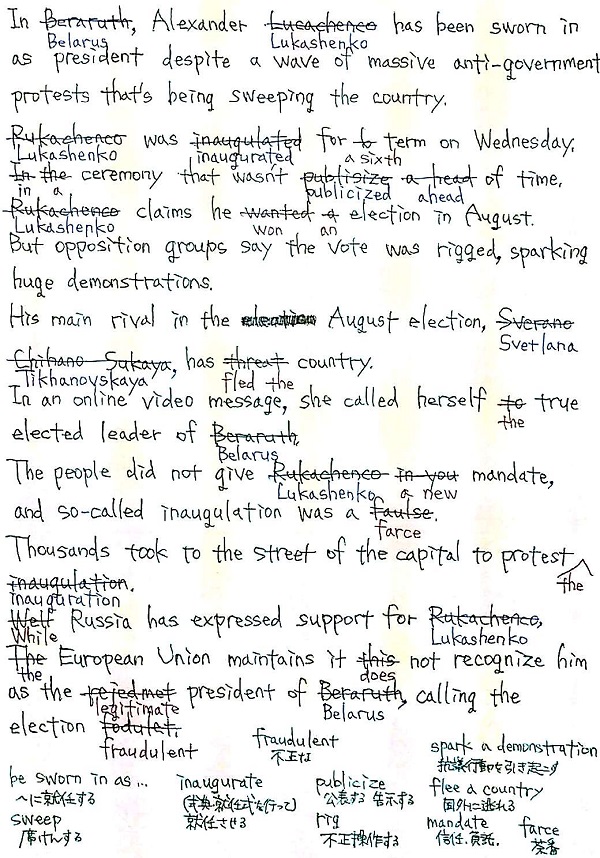 In Beraruth, Alexander Lucachenco has been sworn in
Belarus Lukashenko
as president despite a wave of massive anti-government
protests that's being sweeping the country.
Rukachenco was inaugulated for 6 term on Wednesday.
Lukashenko inaugurated a sixth
In the ceremony that wasn't publisize a head of time.
in a publicized ahead
Rukachenco claims he wanted a election in August.
Lukashenko won an
But opposition groups say the vote was rigged, sparking
huge demonstrations.
His main rival in the August election, Sverano
Svetlana
Chihano Sukaya, has threat country.
Tikhanovskaya fled the
In an online video message, she called herself to true
the
elected leader of Beraruth,
Belarus
The people did not give Rukachenco in you mandate,
Lukashenko a new
and so-called inaugulation was a faulse.
farce
Thousands took to the street of the capital to protest
the
inaugulation.
inauguration
Welf Russia has expressed support for Rukachenco,
While Lukashenko
The European Union maintains it this not recognize him
the does
as the rejedmet president of Beraruth, calling the
legitimate Belarus
election fodulet.
fraudulent
fraudulent spark a demonstration
不正な 抗議行動を引き起こす
be sworn in as... inaugurate publicize flee a country
〜に就任する (式典・就任式を行って) 公表する 告示する 国外に逃れる
sweep 就任させる rig mandate farce
席けんする 不正操作する 信任、負託、 茶番